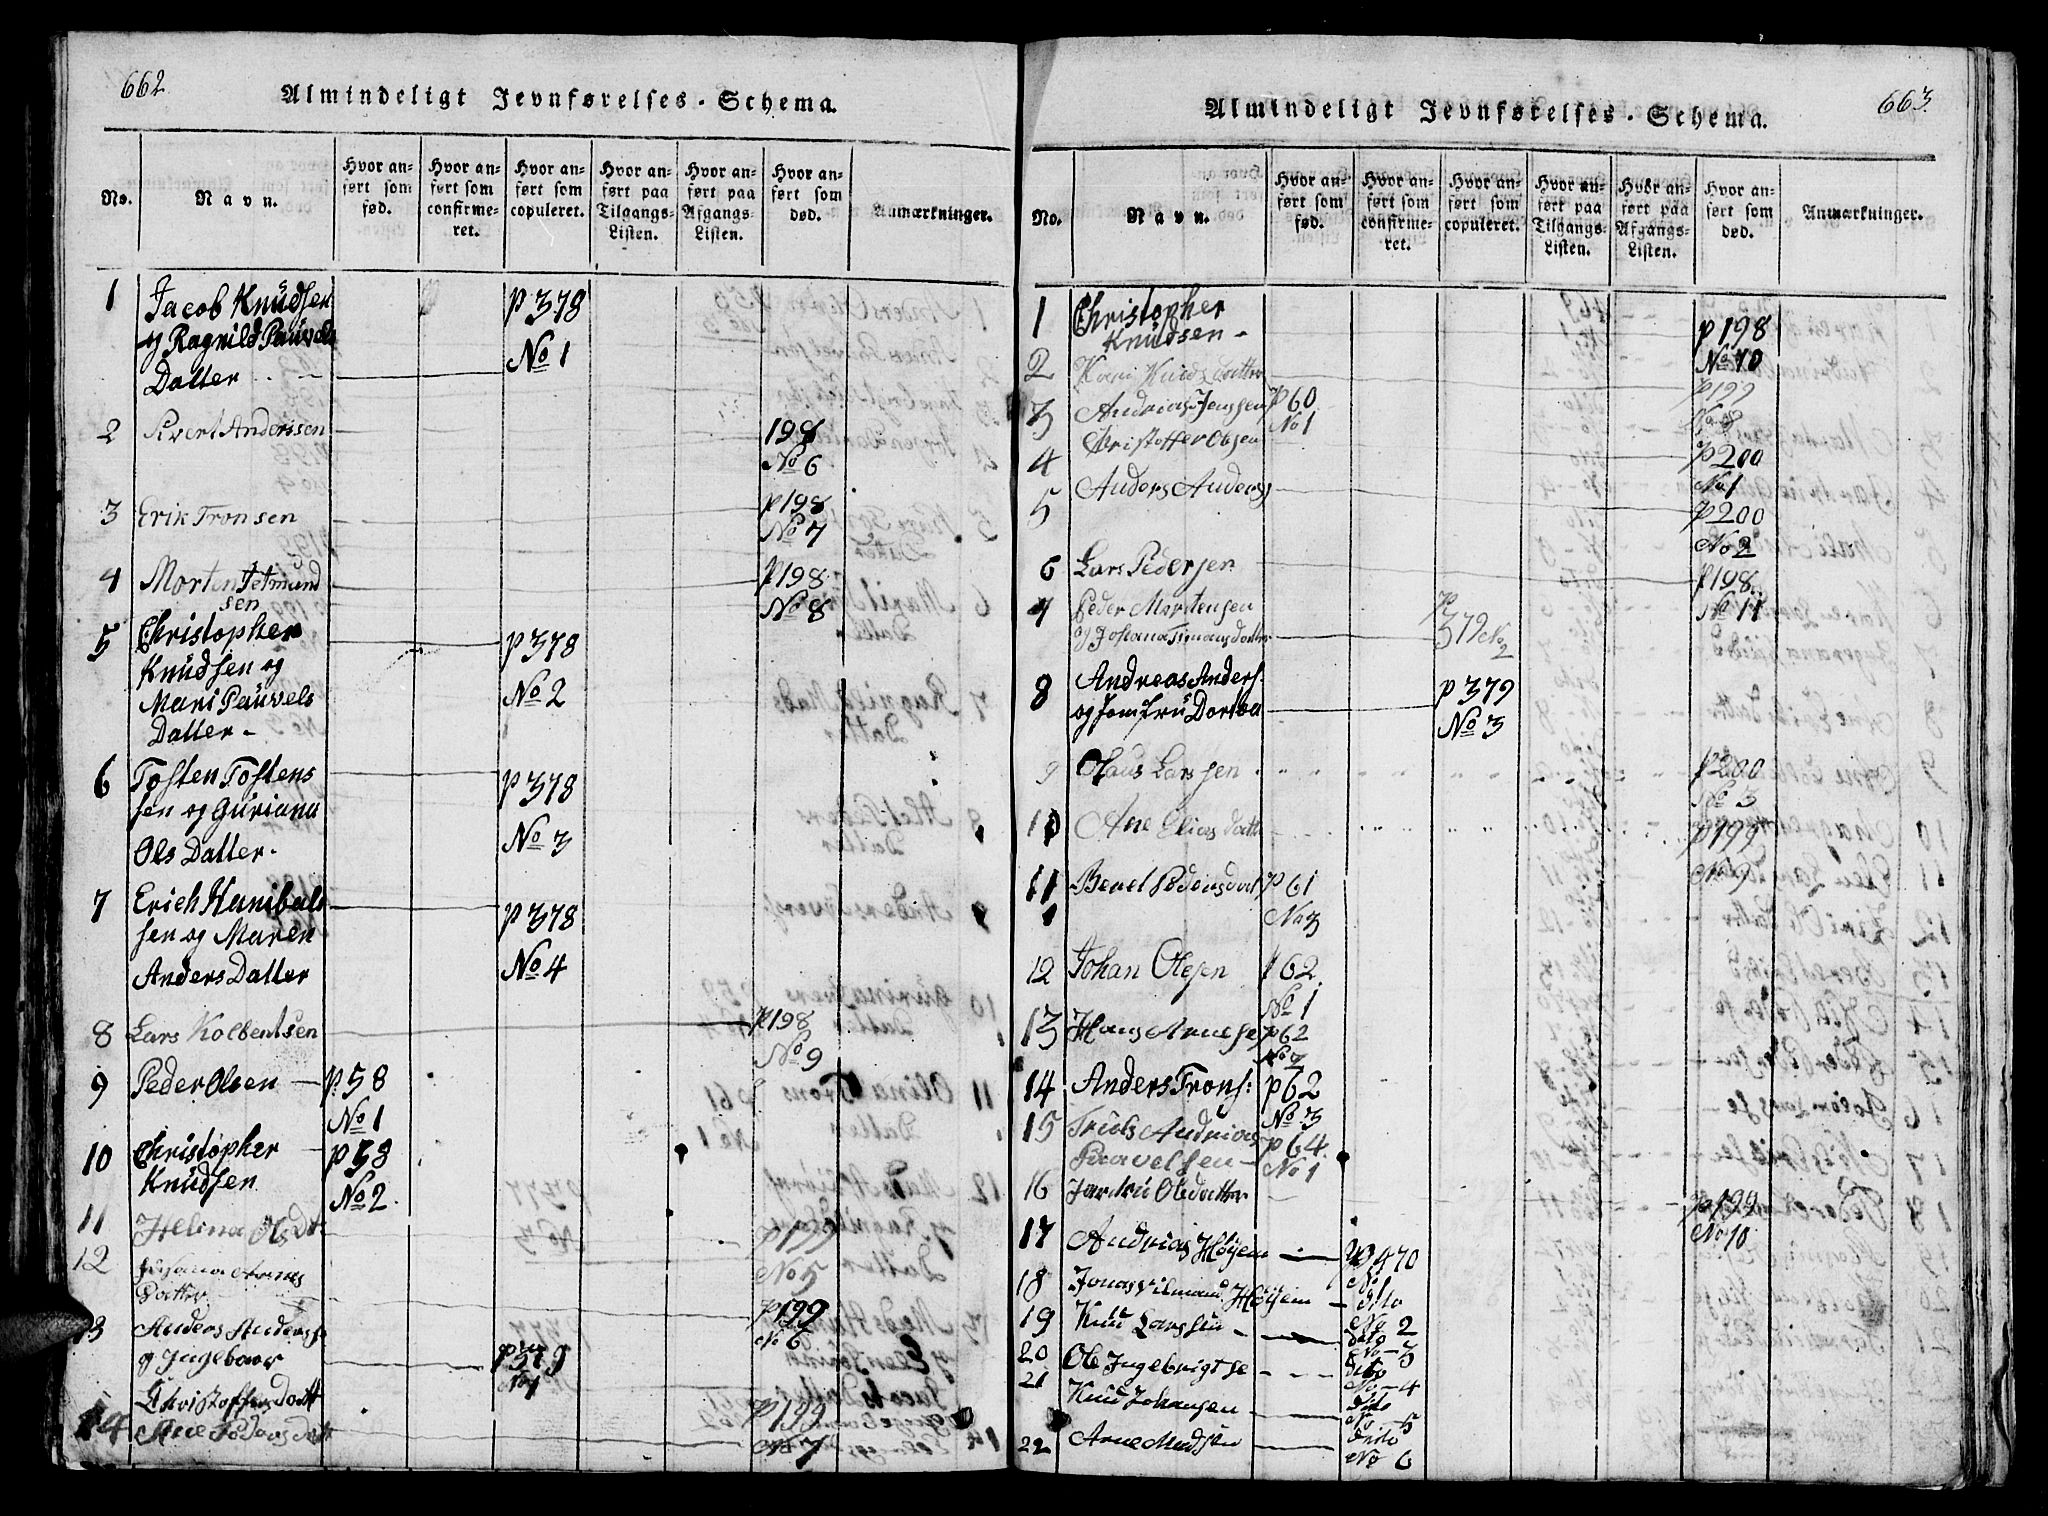 662
Almindeligt Jevnførelses-Schema.
No.
Navn.
Hvor an-
ført som
fød.
Hvor an-
ført som
confirme-
ret.
Hvor an-
ført som
copuleret.
Hvor an-
ført paa
Tilgangs-
Listen.
Hvor an-
ført paa
Afgangs-
Listen.
Hvor an-
ført som
død.
Anmærkninger.
1 Jacob Knudsen p 378
og Ragnild Pauvels No 1
Datter
2 Sivert Anderssen 198
No 6
3 Erik Tronsen p 198
No 7
4 Morten Tetmund p 198
sen No 8
5 Christopher p 378
Knudsen og No 2
Mari Pauvels
Datter
6 Tosten Tostens p 378
sen og Guriana No 3
Ols Datter.
7 Erich Hanibals p 378
sen og Maren No 4
Anders Datter
8 Lars Kolbentsen p 198
No 9
9 Peder Olsen p. 58
No 1
10 Christopher p 58
Knudsen No 2.
11 Helina Olsdt p 199
No 5
12 Johana Arnes
Datter p 199
No 6
13 Anders Anderss
og Ingebaar p 379
No 1
Christoffersdatt
14 Ane Pedersdatt p 199
No 7
663
Almindeligt Jevnførelses-Schema.
No.
Navn.
Hvor an-
ført som
fød.
Hvor an-
ført som
confirme-
ret.
Hvor an-
ført som
copuleret.
Hvor an-
ført paa
Tilgangs-
Listen.
Hvor an-
ført paa
Afgangs-
Listen.
Hvor an-
ført som
død.
Anmærkninger.
1 Christopher p 198
Knudsen No 10
2 Kari Knudsdatter p 199
No 8
3 Andrias Jenssen p 60
No 1
4 Christoffer Olsen p 200
No 1
5 Anders Anderss p 200
No 2
6 Lars Pedersen p 198
No 11
7 Peder Mortensen p
og Johana Timansdatter 379 No 2
8 Andreas Anders. p 379
og Jomfru Dorthea No 3
9 Olaus Larssen p 200
No 3
10 Ane Eliasdatt p 199
No 9
11 Beret Pedersdat p 61
No 3
12 Johan Olesen p 62
No 1
13 Hans Arnese p 62
No 2
14 Anders Trons: p 62
No 3
15 Truls Andrias p 64
Paavelsen No 1
16 Jardru Olsdatter p 199
No 10
17 Andrias Høyem p 470
No 1
18 Jonas Vilmand Høyem dito
No 2
19 Knud Larssen dito
No 3
20 Ole Ingebrigtse dito
No 4
21 Knud Johansen dito
No 5
22 Arne Madsen dito
No 6